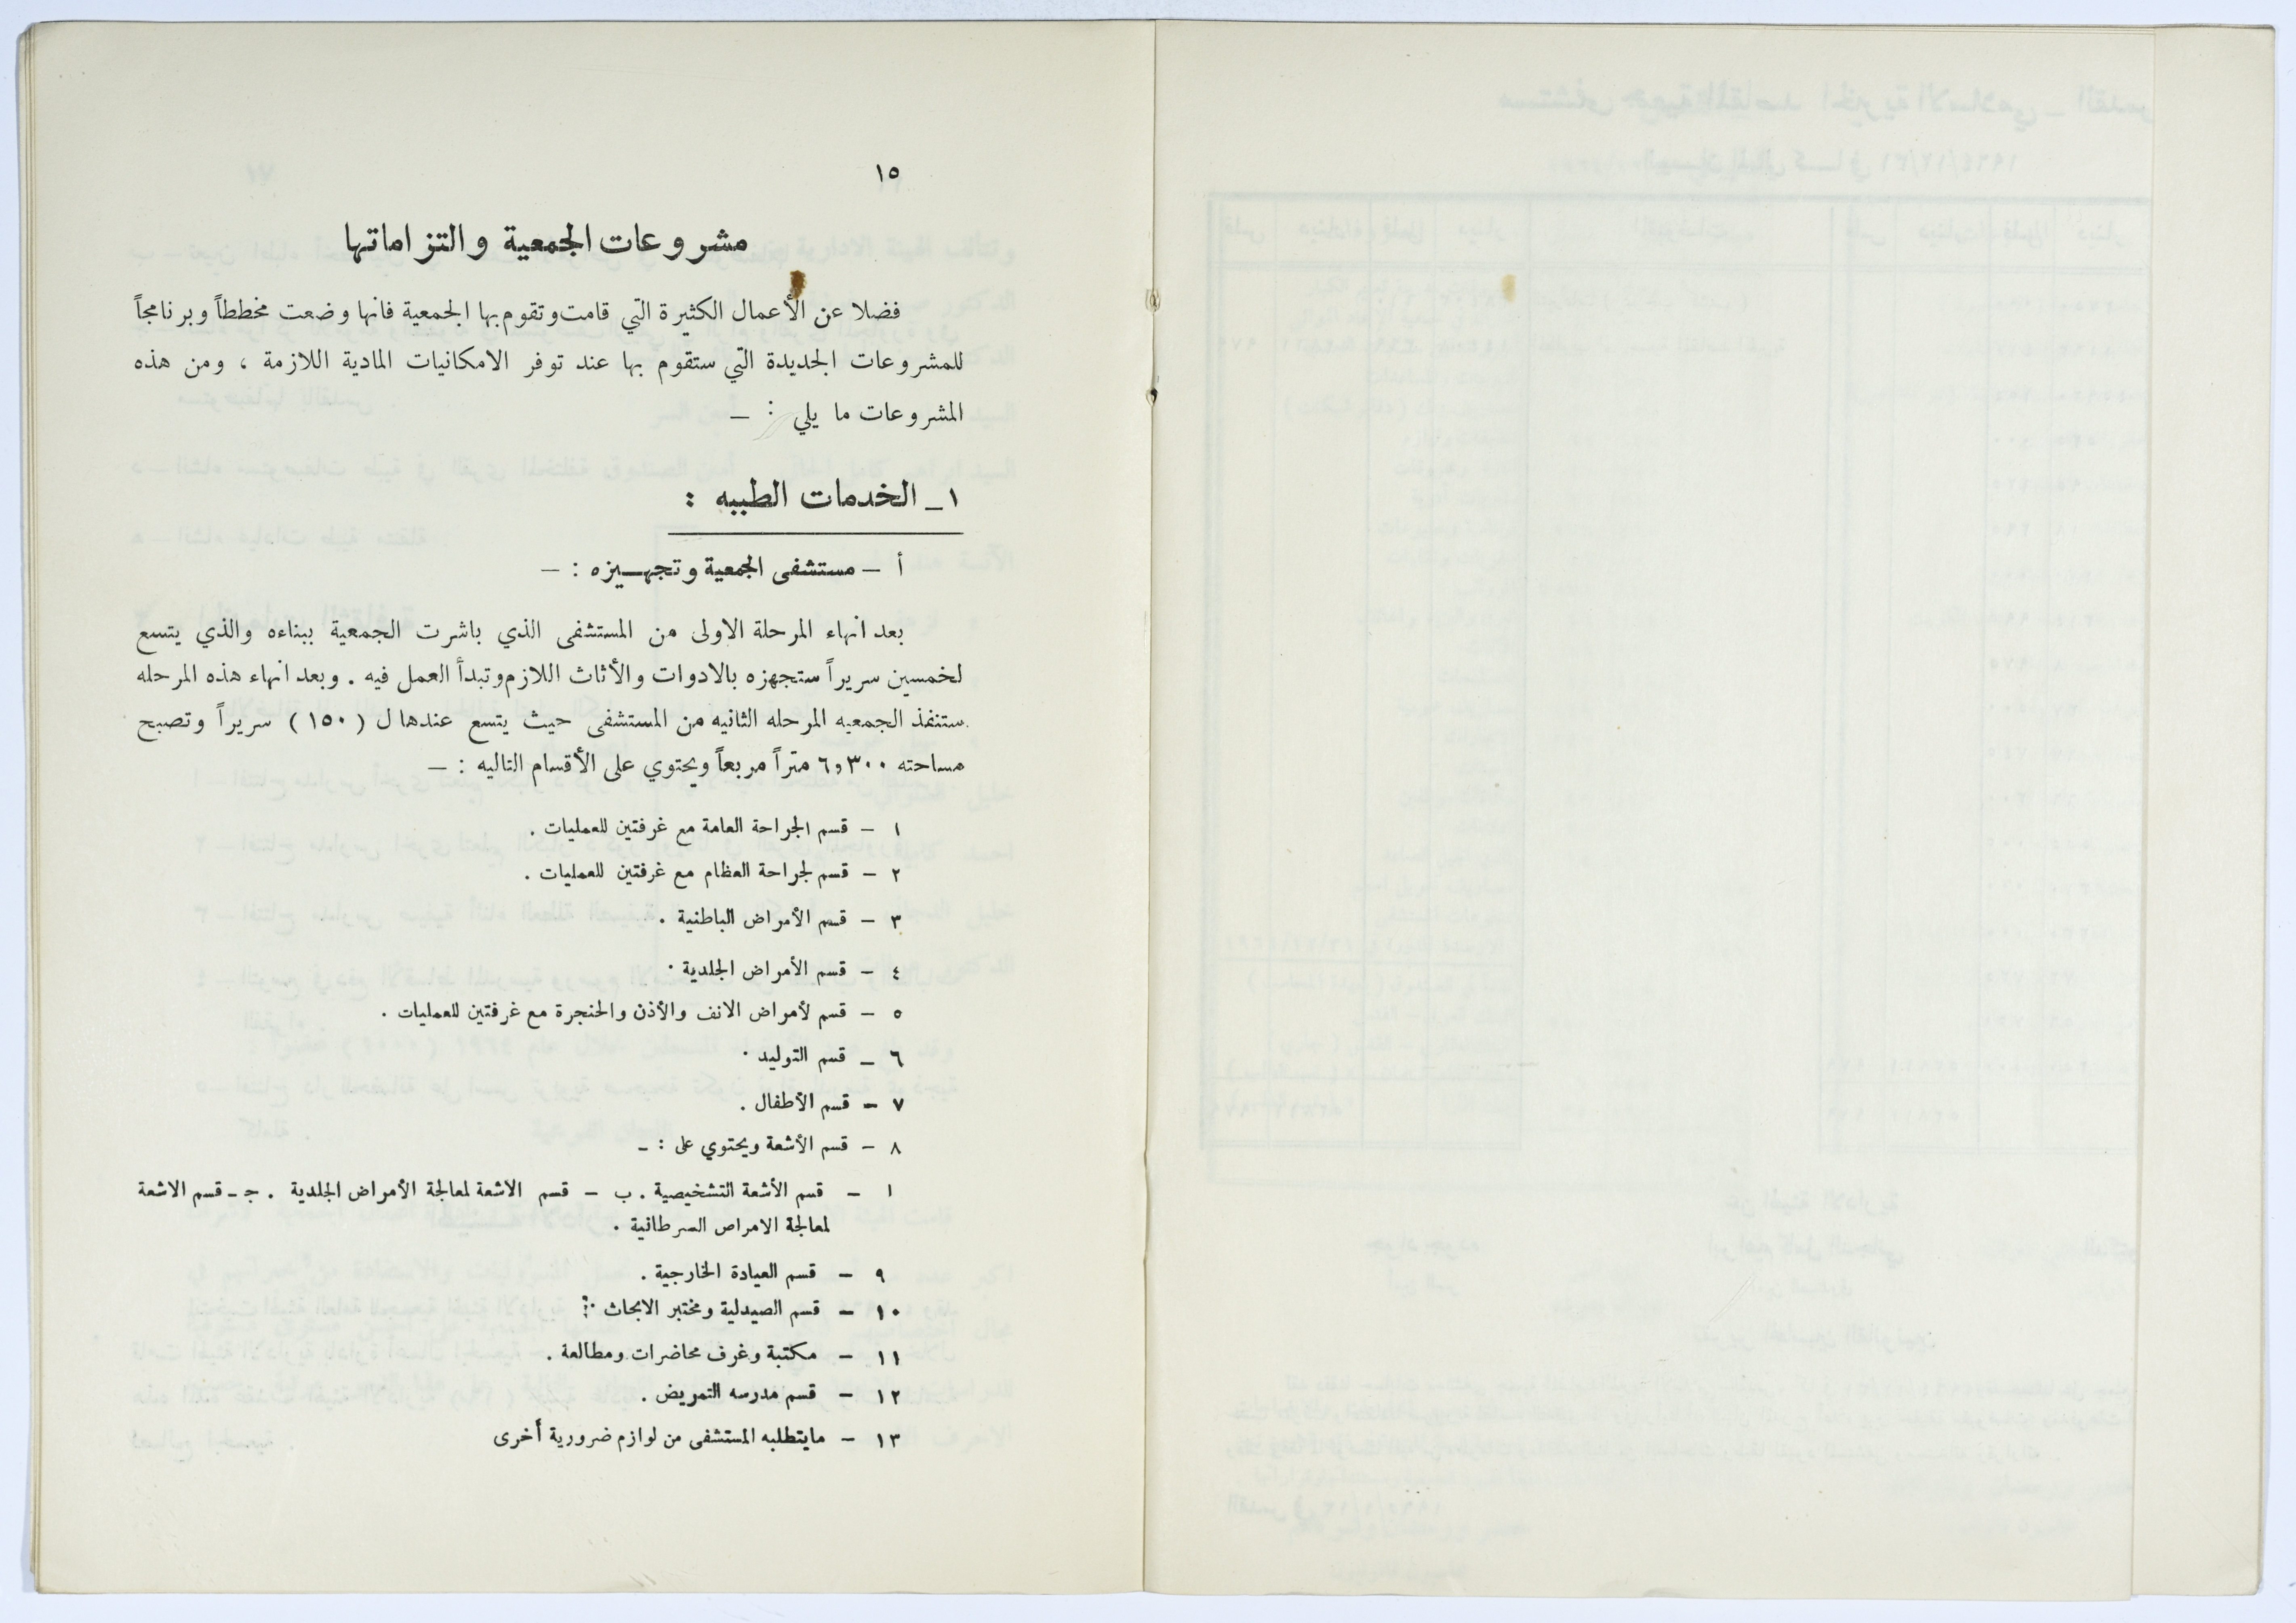 ١٥
مشروعات الجمعية والتزاماتها
فضلا عن الأعمال الكثيرة التي قامت وتقوم بها الجمعية فانها وضعت مخططاً وبرنامجاً
للمشروعات الجديدة التي ستقوم بها عند توفر الامكانيات المادية اللازمة ، ومن هذه
المشروعات ما يلي : —
١ـ الخدمات الطبيه :
أ — مستشفى الجمعية وتجهـيزه : —
بعد انهاء المرحلة الاولى من المستشفى الذي باشرت الجمعية ببناءه والذي يتسع
لخمسين سريراً ستجهزه بالادوات والأثاث اللازم وتبدأ العمل فيه . وبعد انهاء هذه المرحله
ستنفذ الجمعيه المرحله الثانيه من المستشفى حيث يتسع عندها ل ( ١٥٠ ) سريراً وتصبح
مساحته ٦,٣٠٠ متراً مربعاً ويحتوي على الأقسام التاليه : —
١ — قسم الجراحة العامة مع غرفتين للعمليات .
٢ — قسم لجراحة العظام مع غرفتين للعمليات .
٣ — قسم الأمراض الباطنية .
٤ — قسم الأمراض الجلدية .
٥ — قسم لأمراض الانف والأذن والحنجرة مع غرفتين للعمليات .
٦ — قسم التوليد .
٧ — قسم الأطفال .
٨ — قسم الأشعة ويحتوي على : —
ا — قسم الأشعة التشخيصية . ب — قسم الاشعة لمعالجة الأمراض الجلدية . جـ ـ قسم الاشعة
لمعالجة الامراص السرطانية .
٩ — قسم العيادة الخارجية .
١٠ — قسم الصيدلية ومختبر الابحاث .
١١ — مكتبة وغرف محاضرات ومطالعة .
١٢ — قسم مدرسه التمريض .
١٣ — مايتطلبه المستشفى من لوازم ضرورية أخرى